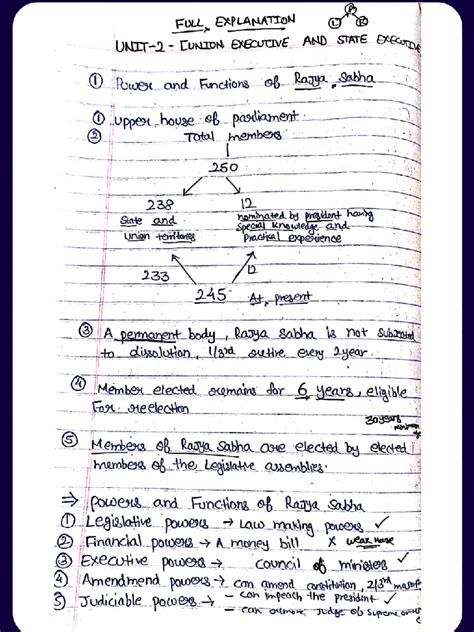 FULL EXPLANATION
UNIT-2 - [UNION EXECUTIVE AND STATE EXECUTIVE
① Power and Functions of Rajya Sabha
① Upper house of parliament
② Total members
250
238 12
State and Union territories
nominated by president having special knowledge and Practical experience
233 12
245 At present
③ A permanent body, Rajya Sabha is not subjected
to dissolution, 1/3rd retire every 2 year.
④ Member elected remains for 6 years, eligible
For reelection
30 years
minimum age
⑤ Members of Rajya Sabha are elected by elected
members of the Legislative assemblies.
⇒ Powers and Functions of Rajya Sabha
① Legislative powers → Law making powers ✓
② Financial powers → A money bill X weak House
③ Executive powers → council of ministers ✓
④ Amendmend powers → can amend constitution, 2/3rd
⑤ Judiciable powers → - can impeach the president ✓
- can remove Judge of Supreme